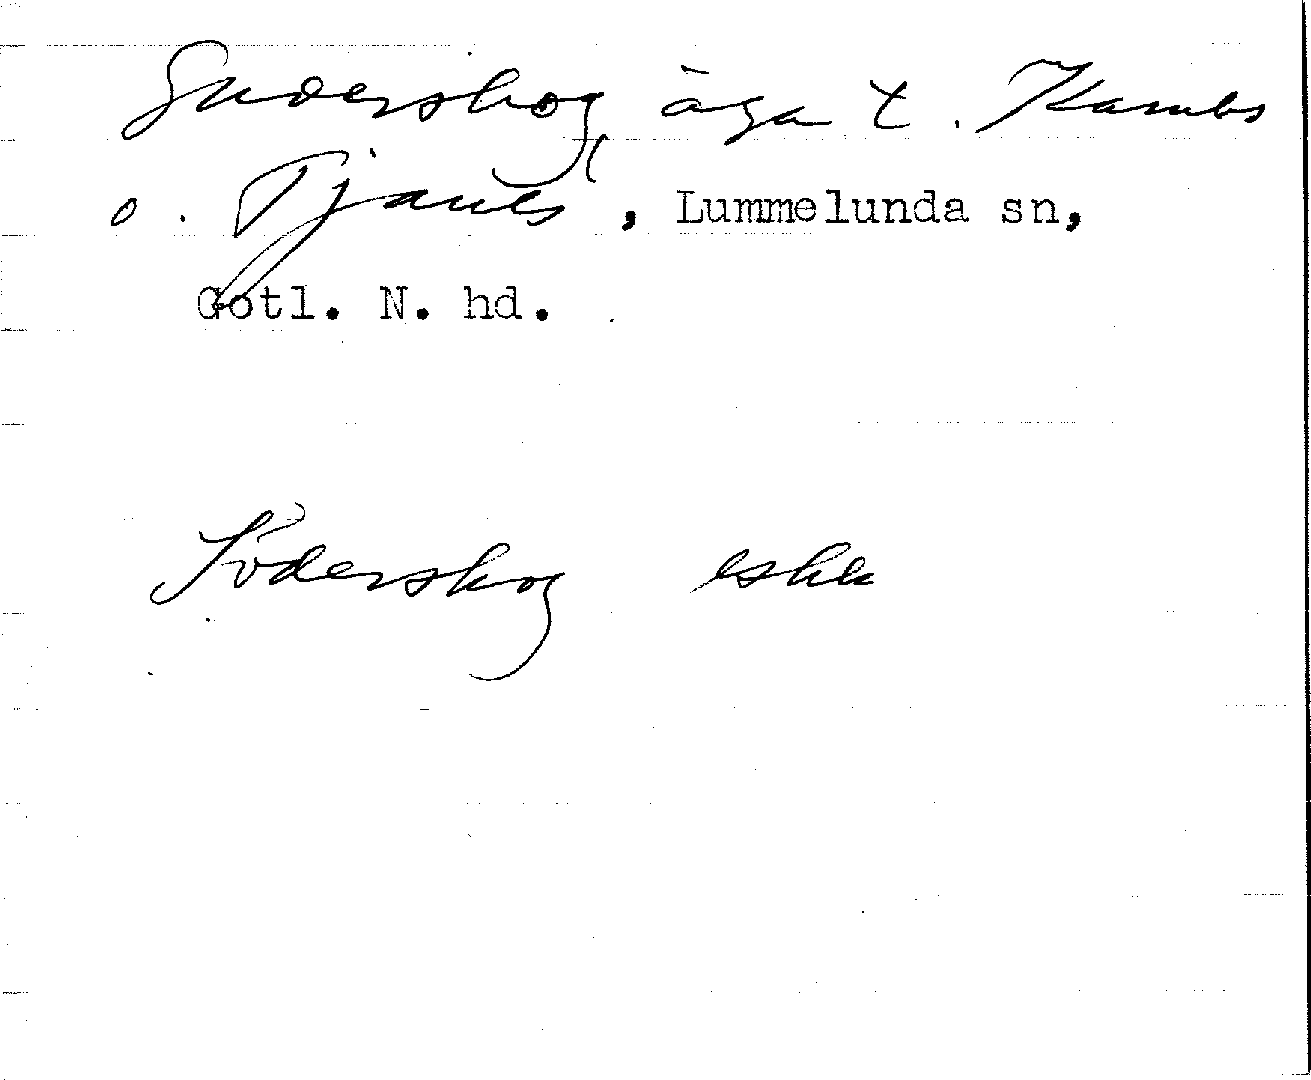 Suderskog, äga t. Kambs
o. Tjauls, Lummelunda sn,
Gotl. N. hd.
Söderskog eskk